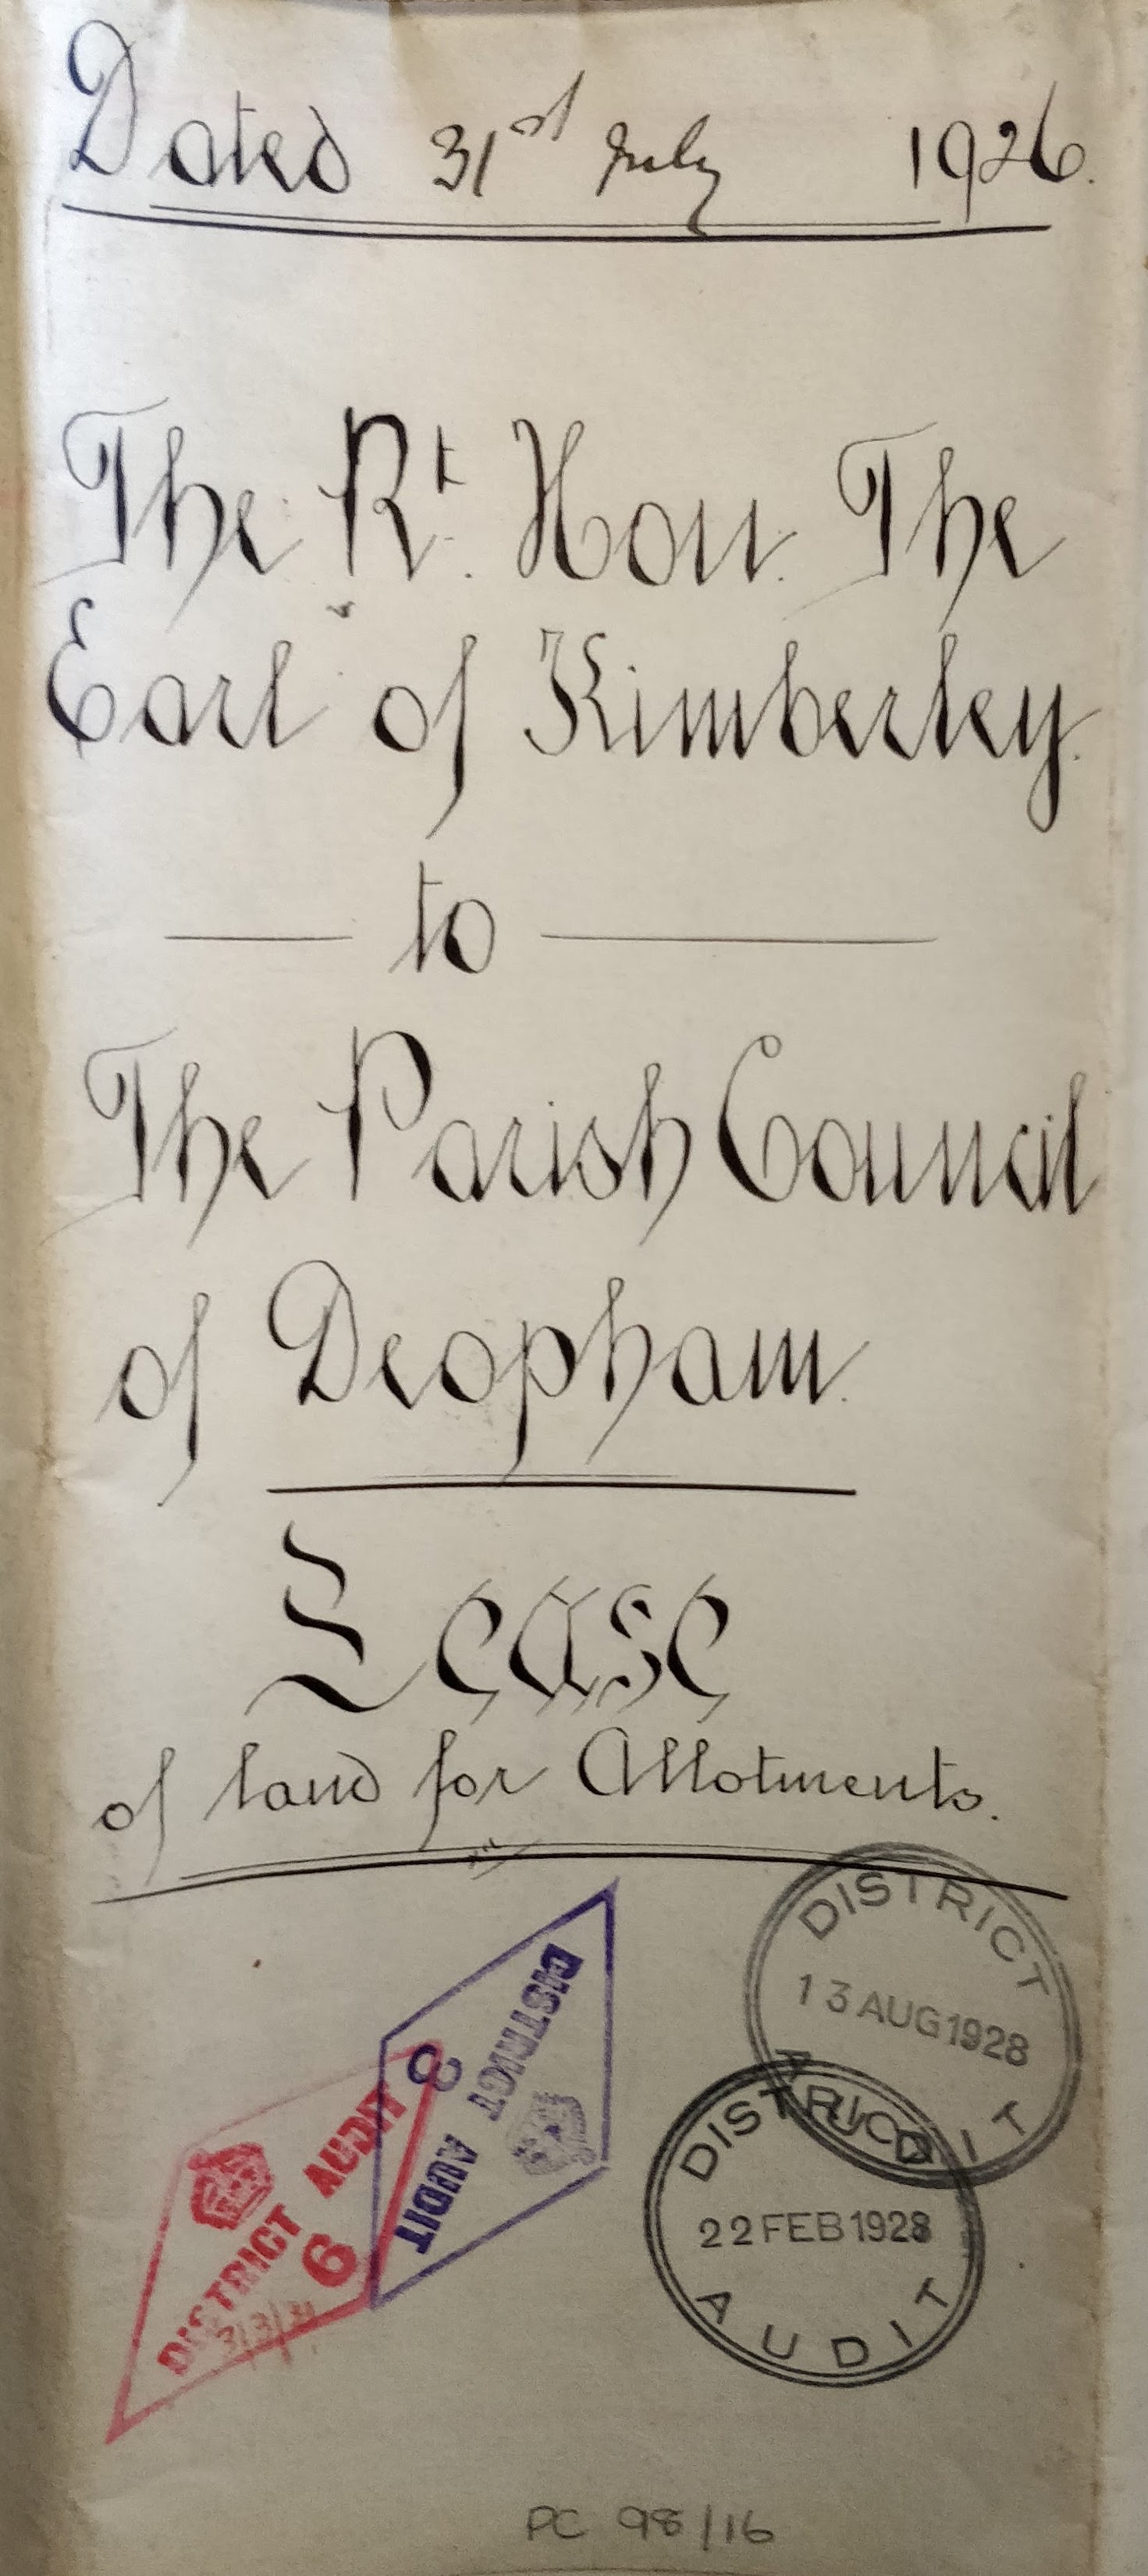 Dated 31st July 1926.
The Rt. Hon. The
Earl of Kimberley.
to
The Parish Council
of Deopham.
Lease
of land for Allotments.
DISTRICT
13 AUG 1928
AUDIT
DISTRICT
22 FEB 1928
AUDIT
DISTRICT AUDIT
DISTRICT AUDIT
6
3/3/31
PC 98/16